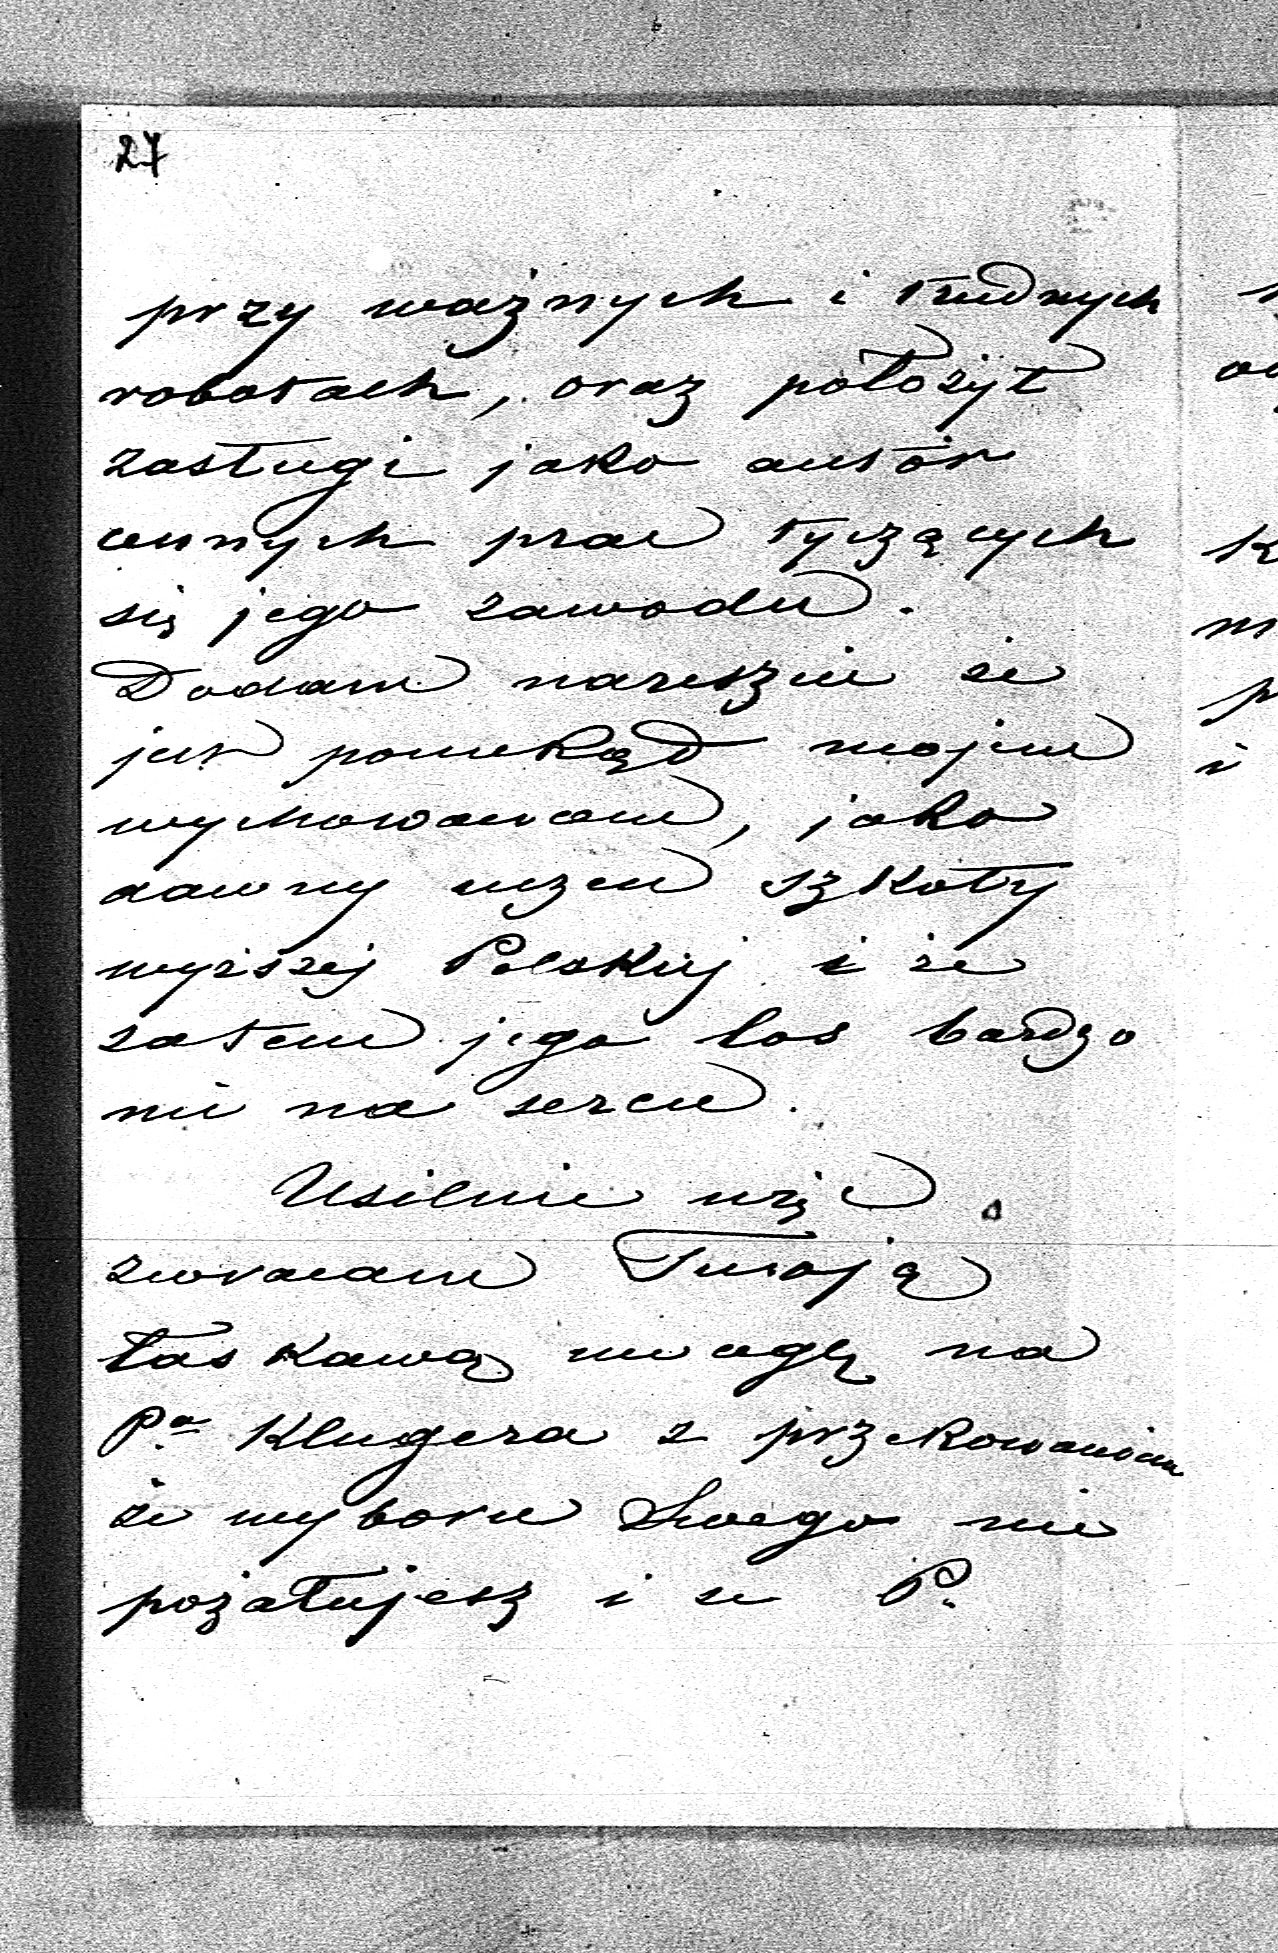 27
przy ważnych i trudnych
robotach, oraz położył
zasługi jako autor
cennych prac tyczących
się jego zawodu.
Dodam nareszcie że
jest poniekąd mojem
wychowańcem, jako
dawny uczeń szkoły
wyższej Polskiej i że
zatem jego los bardzo
mi na sercu.
Usilnie więc
zwracam Twoją
łaskawą uwagę na
Pa Klugera z przekonaniem
że wyboru Swego nie
pożałujesz i że P.